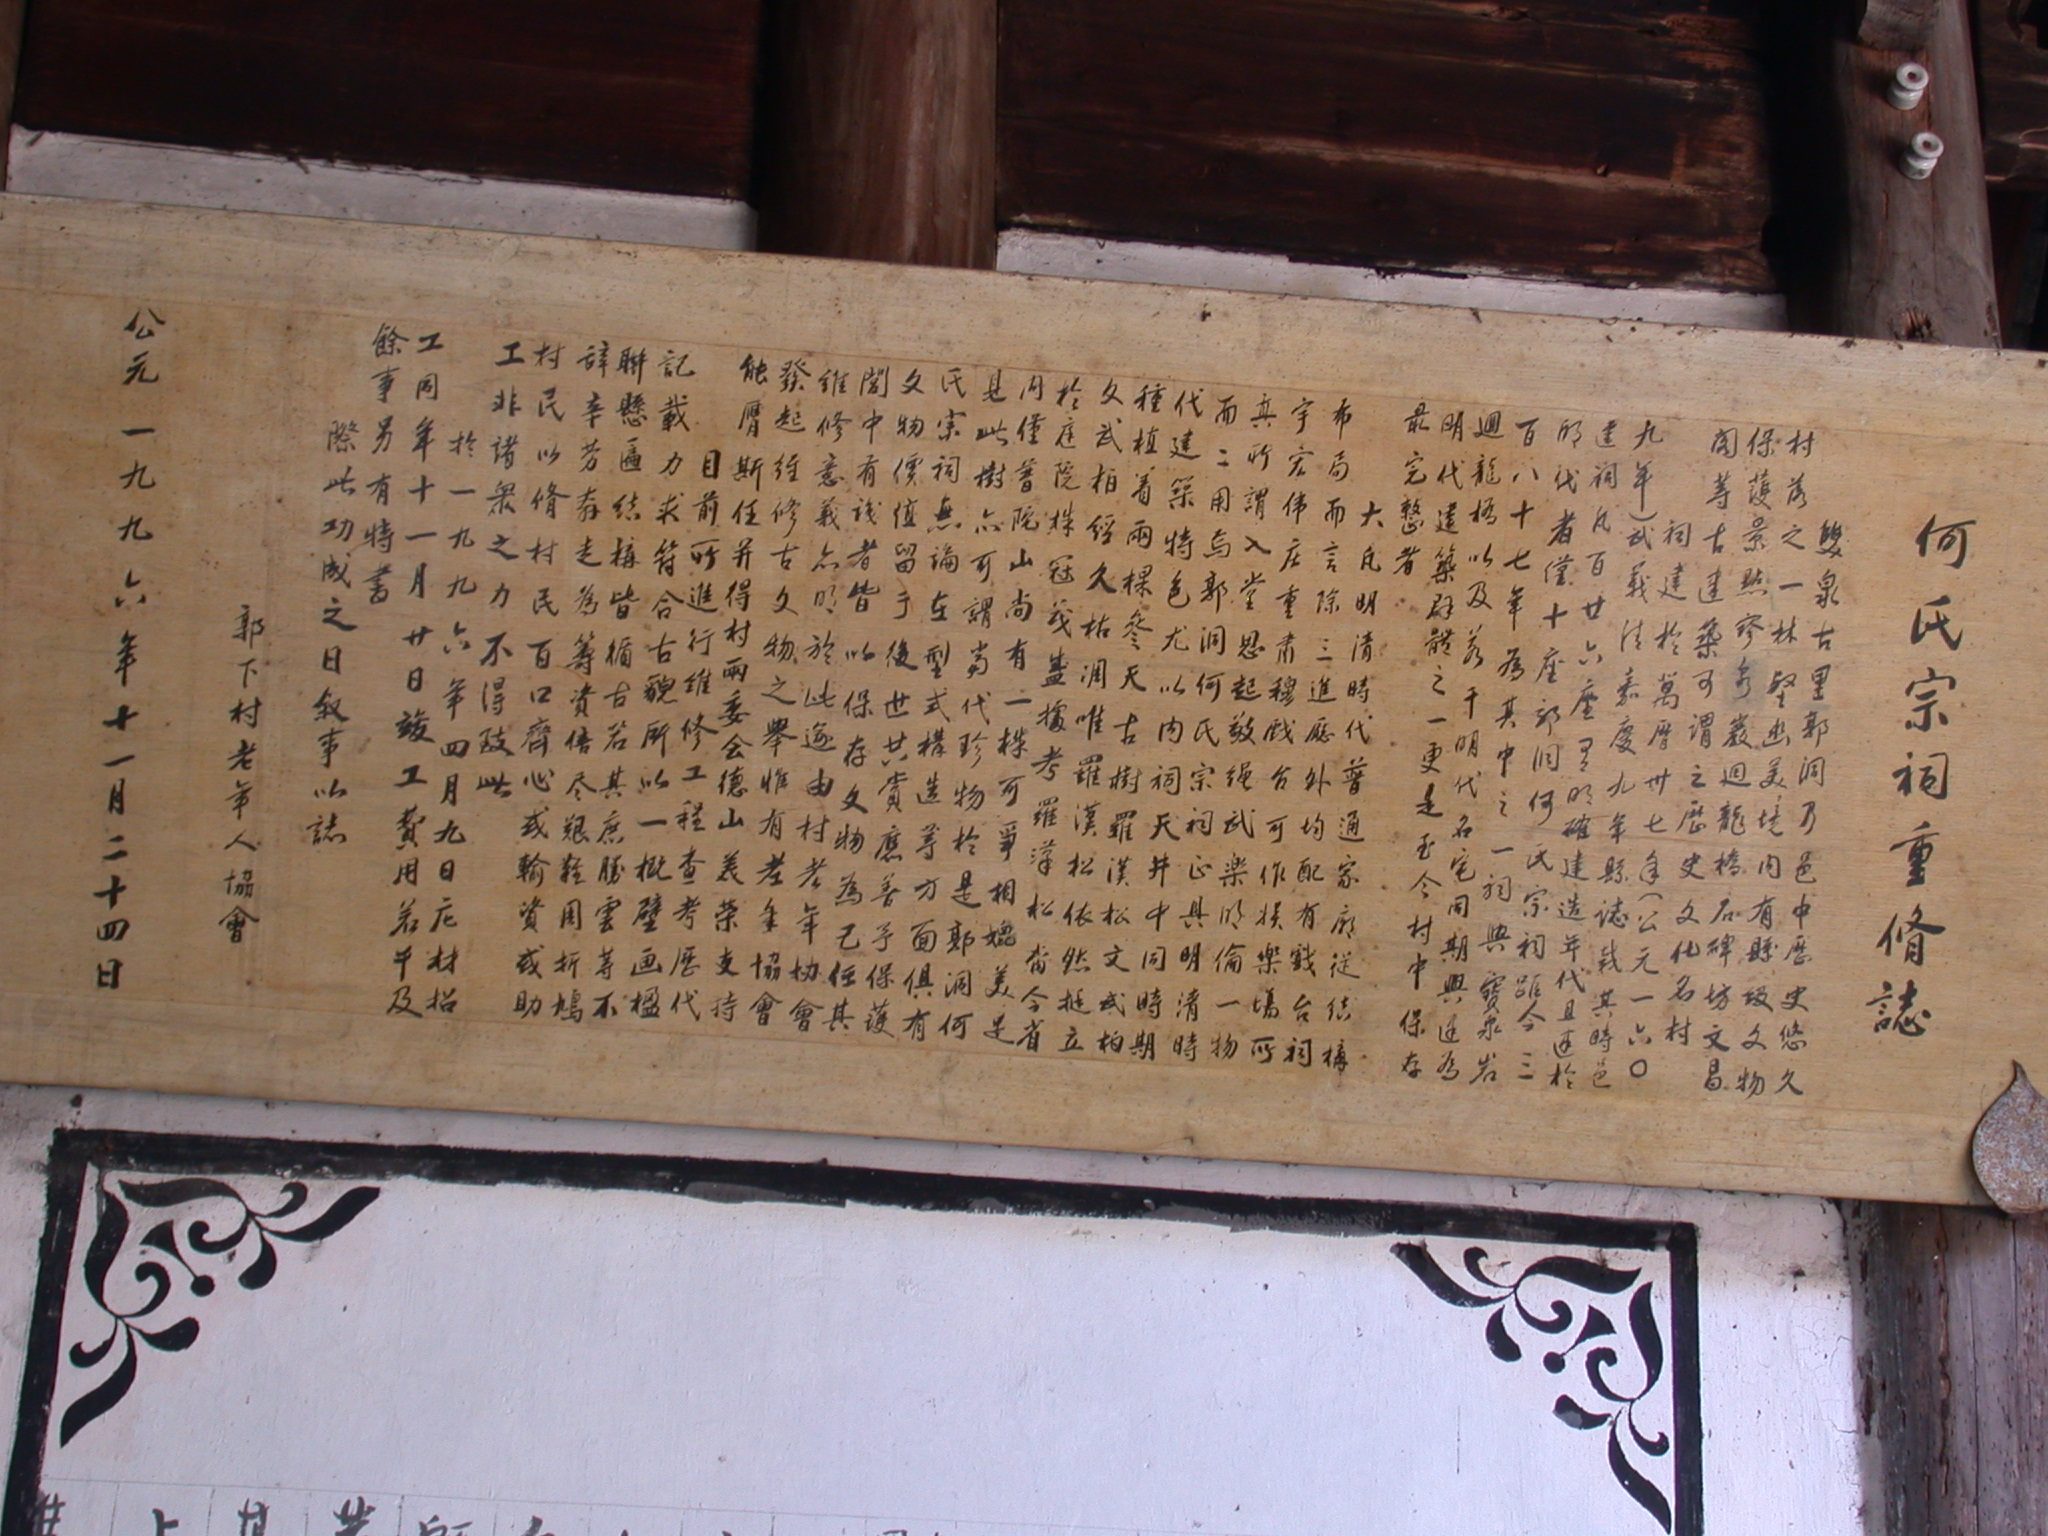 何氏宗祠重脩誌
雙泉古里郭洞乃邑中歷史悠久
村落之一林壑幽美境內有縣級文物
保護景點寥多巖迴龍橋石碑坊文昌
閣等古建築可謂之歷史文化名村
祠建於萬曆卅七年(公元一六〇
九年)武義清嘉慶九年縣誌載其時邑
建祠凡百廿六座有明確建造年代且速於
明代者僅十座郭洞何氏宗祠距今三
百八十七年為其中之一祠與寶泉岩
迴龍橋以及若干明代名宅同期興造為
明代建築群體之一更是至今村中保存
最完整者
大凡明清時代普通家廟從結構
布局而言除三進廳外均配有戲台祠
宇宏伟庄重肅穆戲台可作娱樂場所
真所謂入堂思起敬绳武樂明倫一物
而二用焉郭洞何氏宗祠正具明清時
代建築特色尤以內祠天井中同時期
種植着兩棵參天古樹羅漢松文武柏
文武柏經久枯凋唯羅漢松依然挺立
於庭院株冠茂盛據考羅漢松當今省
內僅普院山尚有一株可爭相媲美足
見此樹亦可謂當代珍物於是郭洞何
氏宗祠無論在型式構造等方面俱有
文物價值留于後世共賞應善予保護
閣中有識者皆以保存文物為己任其
維修意義亦明於此遂由村老年協會
發起維修古文物之舉惟有老年協會
能膺斯任并得村兩委会德山美荣支持
目前所進行維修工程查考歷代
記載力求符合古貌所以一概壁画楹
聯懸匾結構皆循古若其庶勝雲等不
辞辛劳奔走為籌资倍尽艱難周折鳩
村民以脩村民百口齊心或輸资或助
工非諸衆之力不得致此
於一九九六年四月九日庀材招
工同年十一月廿日竣工費用若干及
餘事另有特書
際此功成之日叙事以誌
郭下村老年人協會
公元一九九六年十一月二十四日